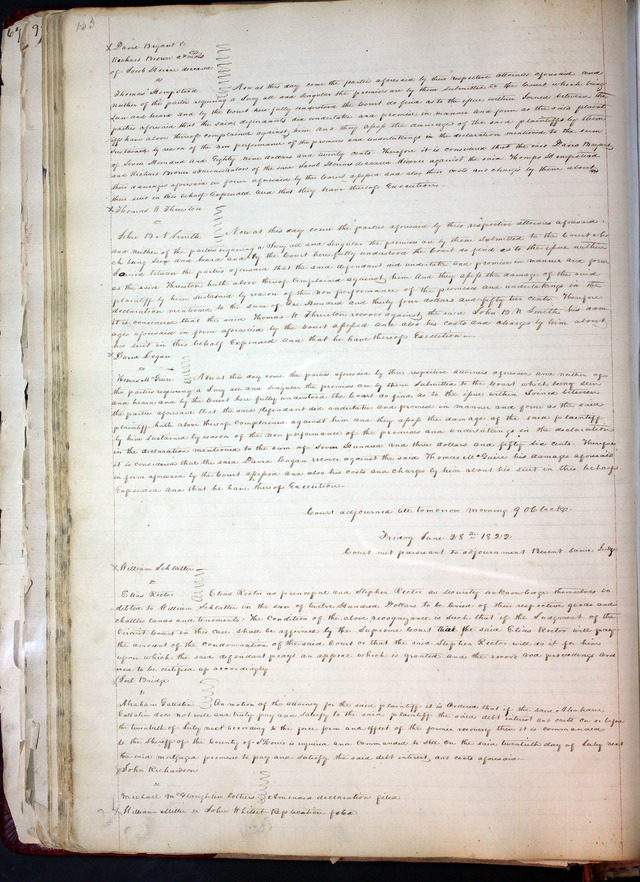 153
David Bryant &
Richard Brown admors
of Jacob Horine deceased
vs
Thomas Hempstead Now at this day come the parties aforesaid by their respective attornies aforesaid and
neither of the parties requiring a Jury all and singular the premises are by them submitted to the Court which being
seen and heard and by the Court here fully understood the Court do find as to the issue within Joined between the
parties aforesaid that the said defendant did undertake and promise in manner and form as the said plaintiffs
hath above thereof complained against him and they assess the damages of the said plaintiffs by them
sustained by reason of the non performance of the promises and undertakings in the declaration mentioned to the sum
of Seven Hundred and Eighty nine dollars and twenty cents Therefore it is considered that the said David Bryant
and Richard Brown administrators of the said Jacob Horine deceased recover against the said Thomas Hempstead
their damages aforesaid in form aforesaid by the Court assessed and also their costs and charges by them about
their suit in this behalf Expended and that they have thereof Execution
Thomas H Thruston
vs
John B N Smith Now at this day come the parties aforesaid by their respective attornies aforesaid
and neither of the parties requiring a Jury all and singular the premises are by them submitted to the Court whi
ch being seen and heard and by the Court here fully understood the Court do find as to the issue within
Joined between the parties aforesaid that the said defendant did undertake and promise in manner and form
as the said Thruston hath above thereof complained against him And they assess the damages of the said
plaintiff by him sustained by reason of the non performance of the promises and undertakings in the
declaration mentioned to the sum of One Hundred and thirty four dollars and fifty two cents Therefore
it is considered that the said Thomas H Thruston recover against the said John B N Smith his dam
ages aforesaid in form aforesaid by the Court assessed and also his costs and charges by him about
his suit in this behalf Expended and that he have thereof Execution
David Logan
vs
Thomas McGuire Now at this day come the parties aforesaid by their respective attornies aforesaid and neither of
the parties requiring a Jury all and singular the premises are by them submitted to the Court which being seen
and heard and by the Court here fully understood the Court do find as to the issue within Joined between
the parties aforesaid that the said defendant did undertake and promise in manner and form as the said
plaintiff hath above thereof complained against him and they assess the damages of the said plaintiff
by him sustained by reason of the non performance of the promises and undertakings in the declaration
in the declaration mentioned to the sum of Seven Hundred and three dollars and fifty six cents Therefore
it is considered that the said David Logan recover against the said Thomas McGuire his damages aforesaid
in form aforesaid by the Court assessed and also his costs and charges by him about his suit in this behalf
Expended and that he have thereof Execution
Court adjourned till tomorrow morning 9 oClock
Friday June 28th 1822
Court met pursuant to adjournment Present same Judge
William Schlatter
vs
Elias Rector Elias Rector as principal and Stephen Rector as security acknowledge themselves in
debted to William Schlatter in the sum of twelve Hundred Dollars to be levied of their respective goods and
chattles lands and tenements The Condition of the above recognizance is such that if the Judgment of the
Circuit Court in this case shall be affirmed by the Supreme Court that the said Elias Rector will pay
the amount of the condemnation of the said Court or that the said Stephen Rector will do it for him
upon which the said defendant prays an appeal which is granted and the record and proceedings ord
ered to be certified up accordingly
Joel Bridge
vs
Abraham Gallatin On motion of the attorney for the said plaintiff it is ordered that if the said Abraham
Gallatin does not well and truly pay and satisfy to the said plaintiff the said debt interest and costs on or before
the twentieth of July next according to the force form and effect of the former recovery then it is commanded
to the Sheriff of the County of St Louis is required and commanded to sell on the said twentieth day of July next
the said mortgaged premises to pay and satisfy the said debt interest, and costs aforesaid
John Richardson
vs
Michael McGlaughlin Amended declaration filed
William Miller vs John Whitset Replication filed